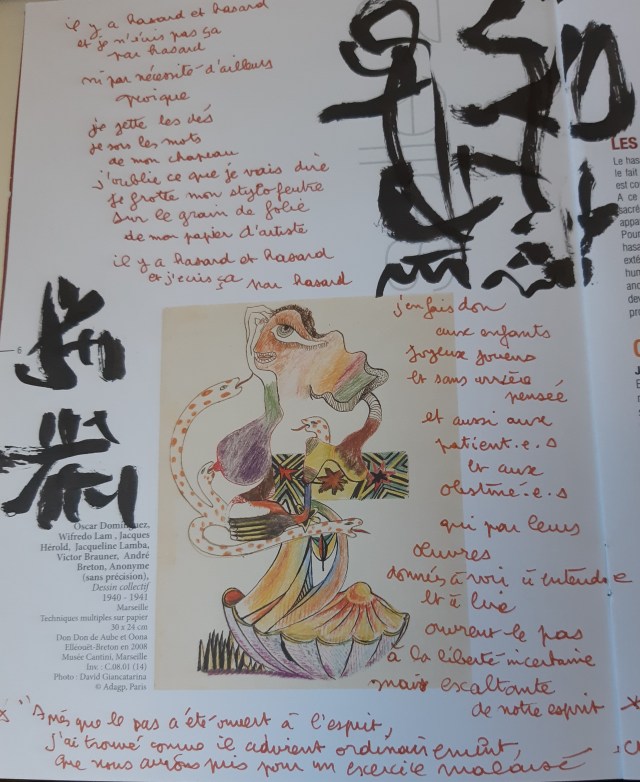 il y a hasard et hasard
et je n'écris pas ça
par hasard
ni par nécessité d'ailleurs
quoique
je jette les dés
je sors les mots
de mon chapeau
j'oublie ce que je vais dire
je frotte mon stylo-feutre
sur le grain de folie
de mon papier d'artiste
il y a hasard et hasard
et j'écris ça par hasard
j'en fais don
aux enfants
joyeux joueurs
et sans arrière
pensée
et aussi aux
patient.e.s
et aux
obstiné.e.s
qui par leurs
œuvres
donnés à voir à entendre
et à lire
ouvrent le pas
à la liberté incertaine
mais exaltante
de notre esprit
6
Oscar Dominguez,
Wifredo Lam, Jacques
Hérold, Jacqueline Lamba,
Victor Brauner, André
Breton, Anonyme
(sans précision),
Dessin collectif
1940 - 1941
Marseille
Techniques multiples sur papier
30 x 24 cm
Don Don de Aube et Oona
Elleouët-Breton en 2008
Musée Cantini, Marseille
Inv. : C.08.01 (14)
Photo : David Giancatarina
© Adagp, Paris
"Après que le pas a été ouvert à l'esprit,
j'ai trouvé comme il advient ordinairement,
que nous avions pris pour un exercice malaisé
LES
Le has
le fait
est co
A ce
sacré
appa
Pour
hasa
exté
hum
anc
dev
pro